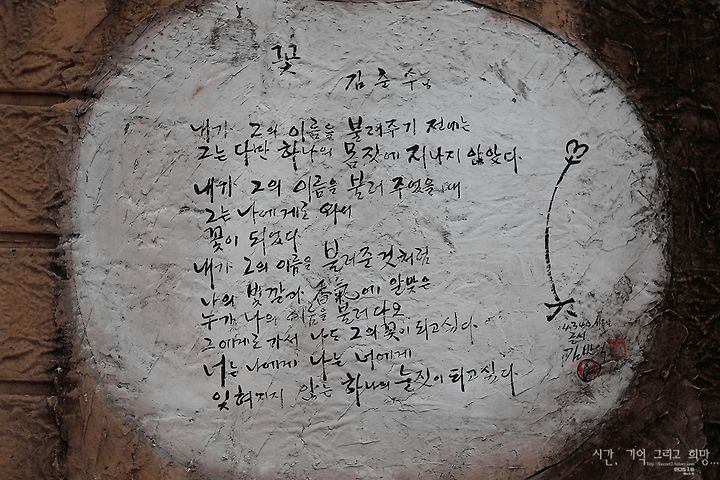 꽃
김춘수님
내가 그의 이름을 불러주기 전에는
그는 다만 하나의 몸짓에 지나지 않았다.
내가 그의 이름을 불러 주었을 때
그는 나에게로 와서
꽃이 되었다
내가 그의 이름을 불러준 것처럼
나의 빛깔과 香氣에 알맞은
누가 나의 이름을 불러다오
그에게로 가서 나도 그의 꽃이 되고 싶다.
너는 나에게 나는 너에게
잊혀지지 않는 하나의 눈짓이 되고 싶다.
시간, 기억 그리고 희망...